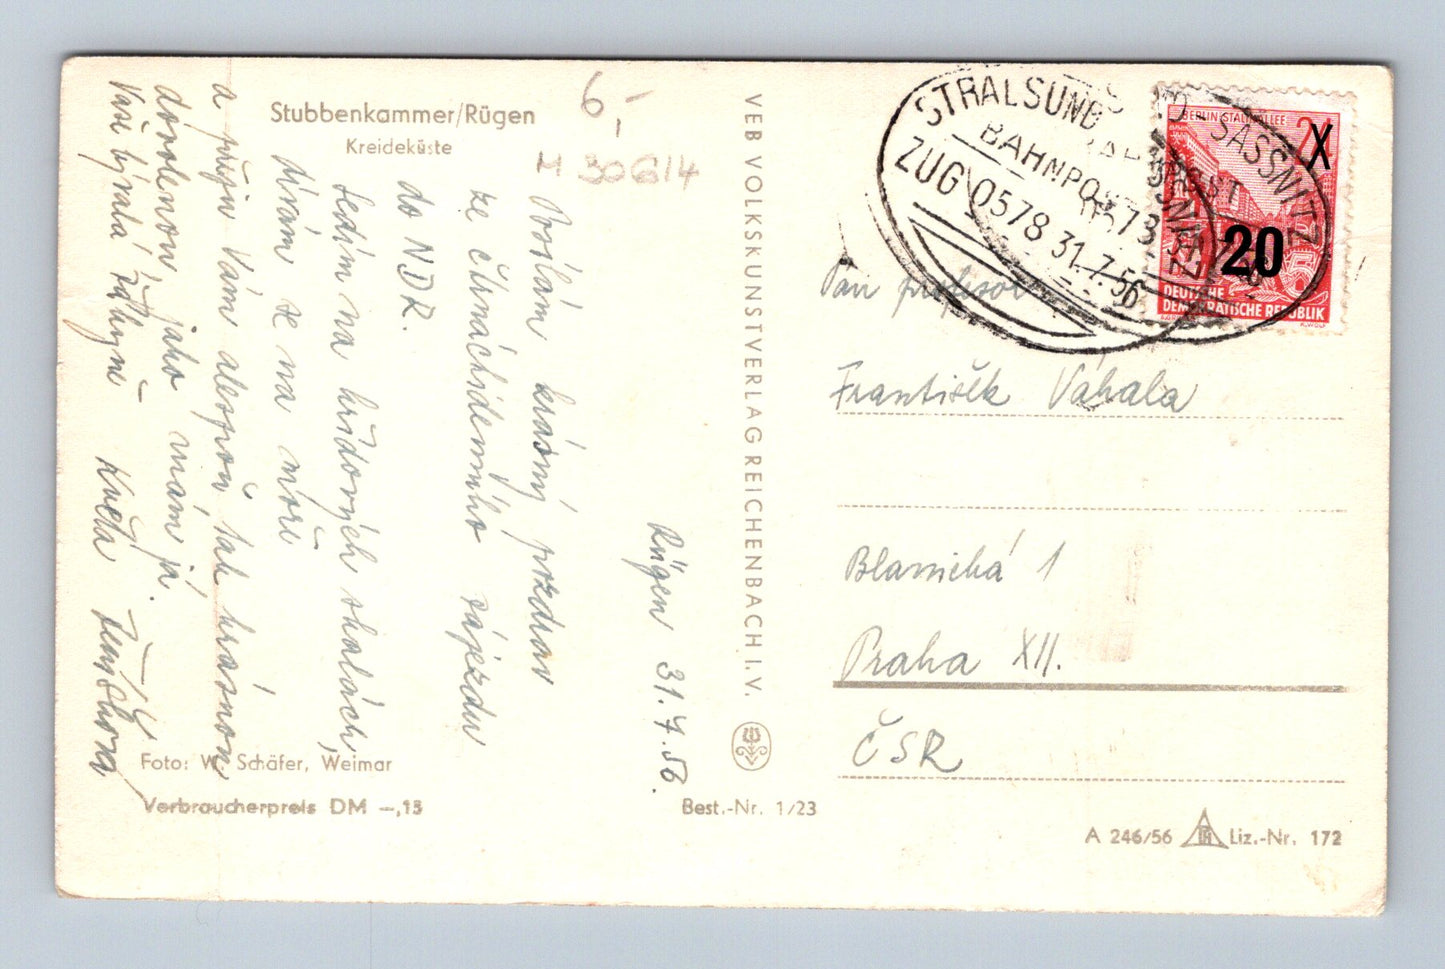 Stubbenkammer/Rügen
Kreideküste
6,-
H 30614
Rügen 31.7.56.
Posílám krásný pozdrav
ze čtrnáctidenního zájezdu
do NDR.
Sedím na křídových skalách,
dívám se na moře
a přeju Vám alespoň tak krásnou
dovolenou, jako mám já.
Vaše bývalá žákyně Květa
Foto: W. Schäfer, Weimar
Verbraucherpreis DM –,15
VEB VOLKSKUNSTVERLAG REICHENBACH I. V.
Best.-Nr. 1/23
STRALSUND SASSNITZ
BAHNPOST
ZUG 0578 31.7.56
BERLIN STALINALLEE
24
X
20
DEUTSCHE
DEMOKRATISCHE REPUBLIK
Pan profesor
František Váhala
Blanická 1
Praha XII.
ČSR
A 246/56 Liz.-Nr. 172